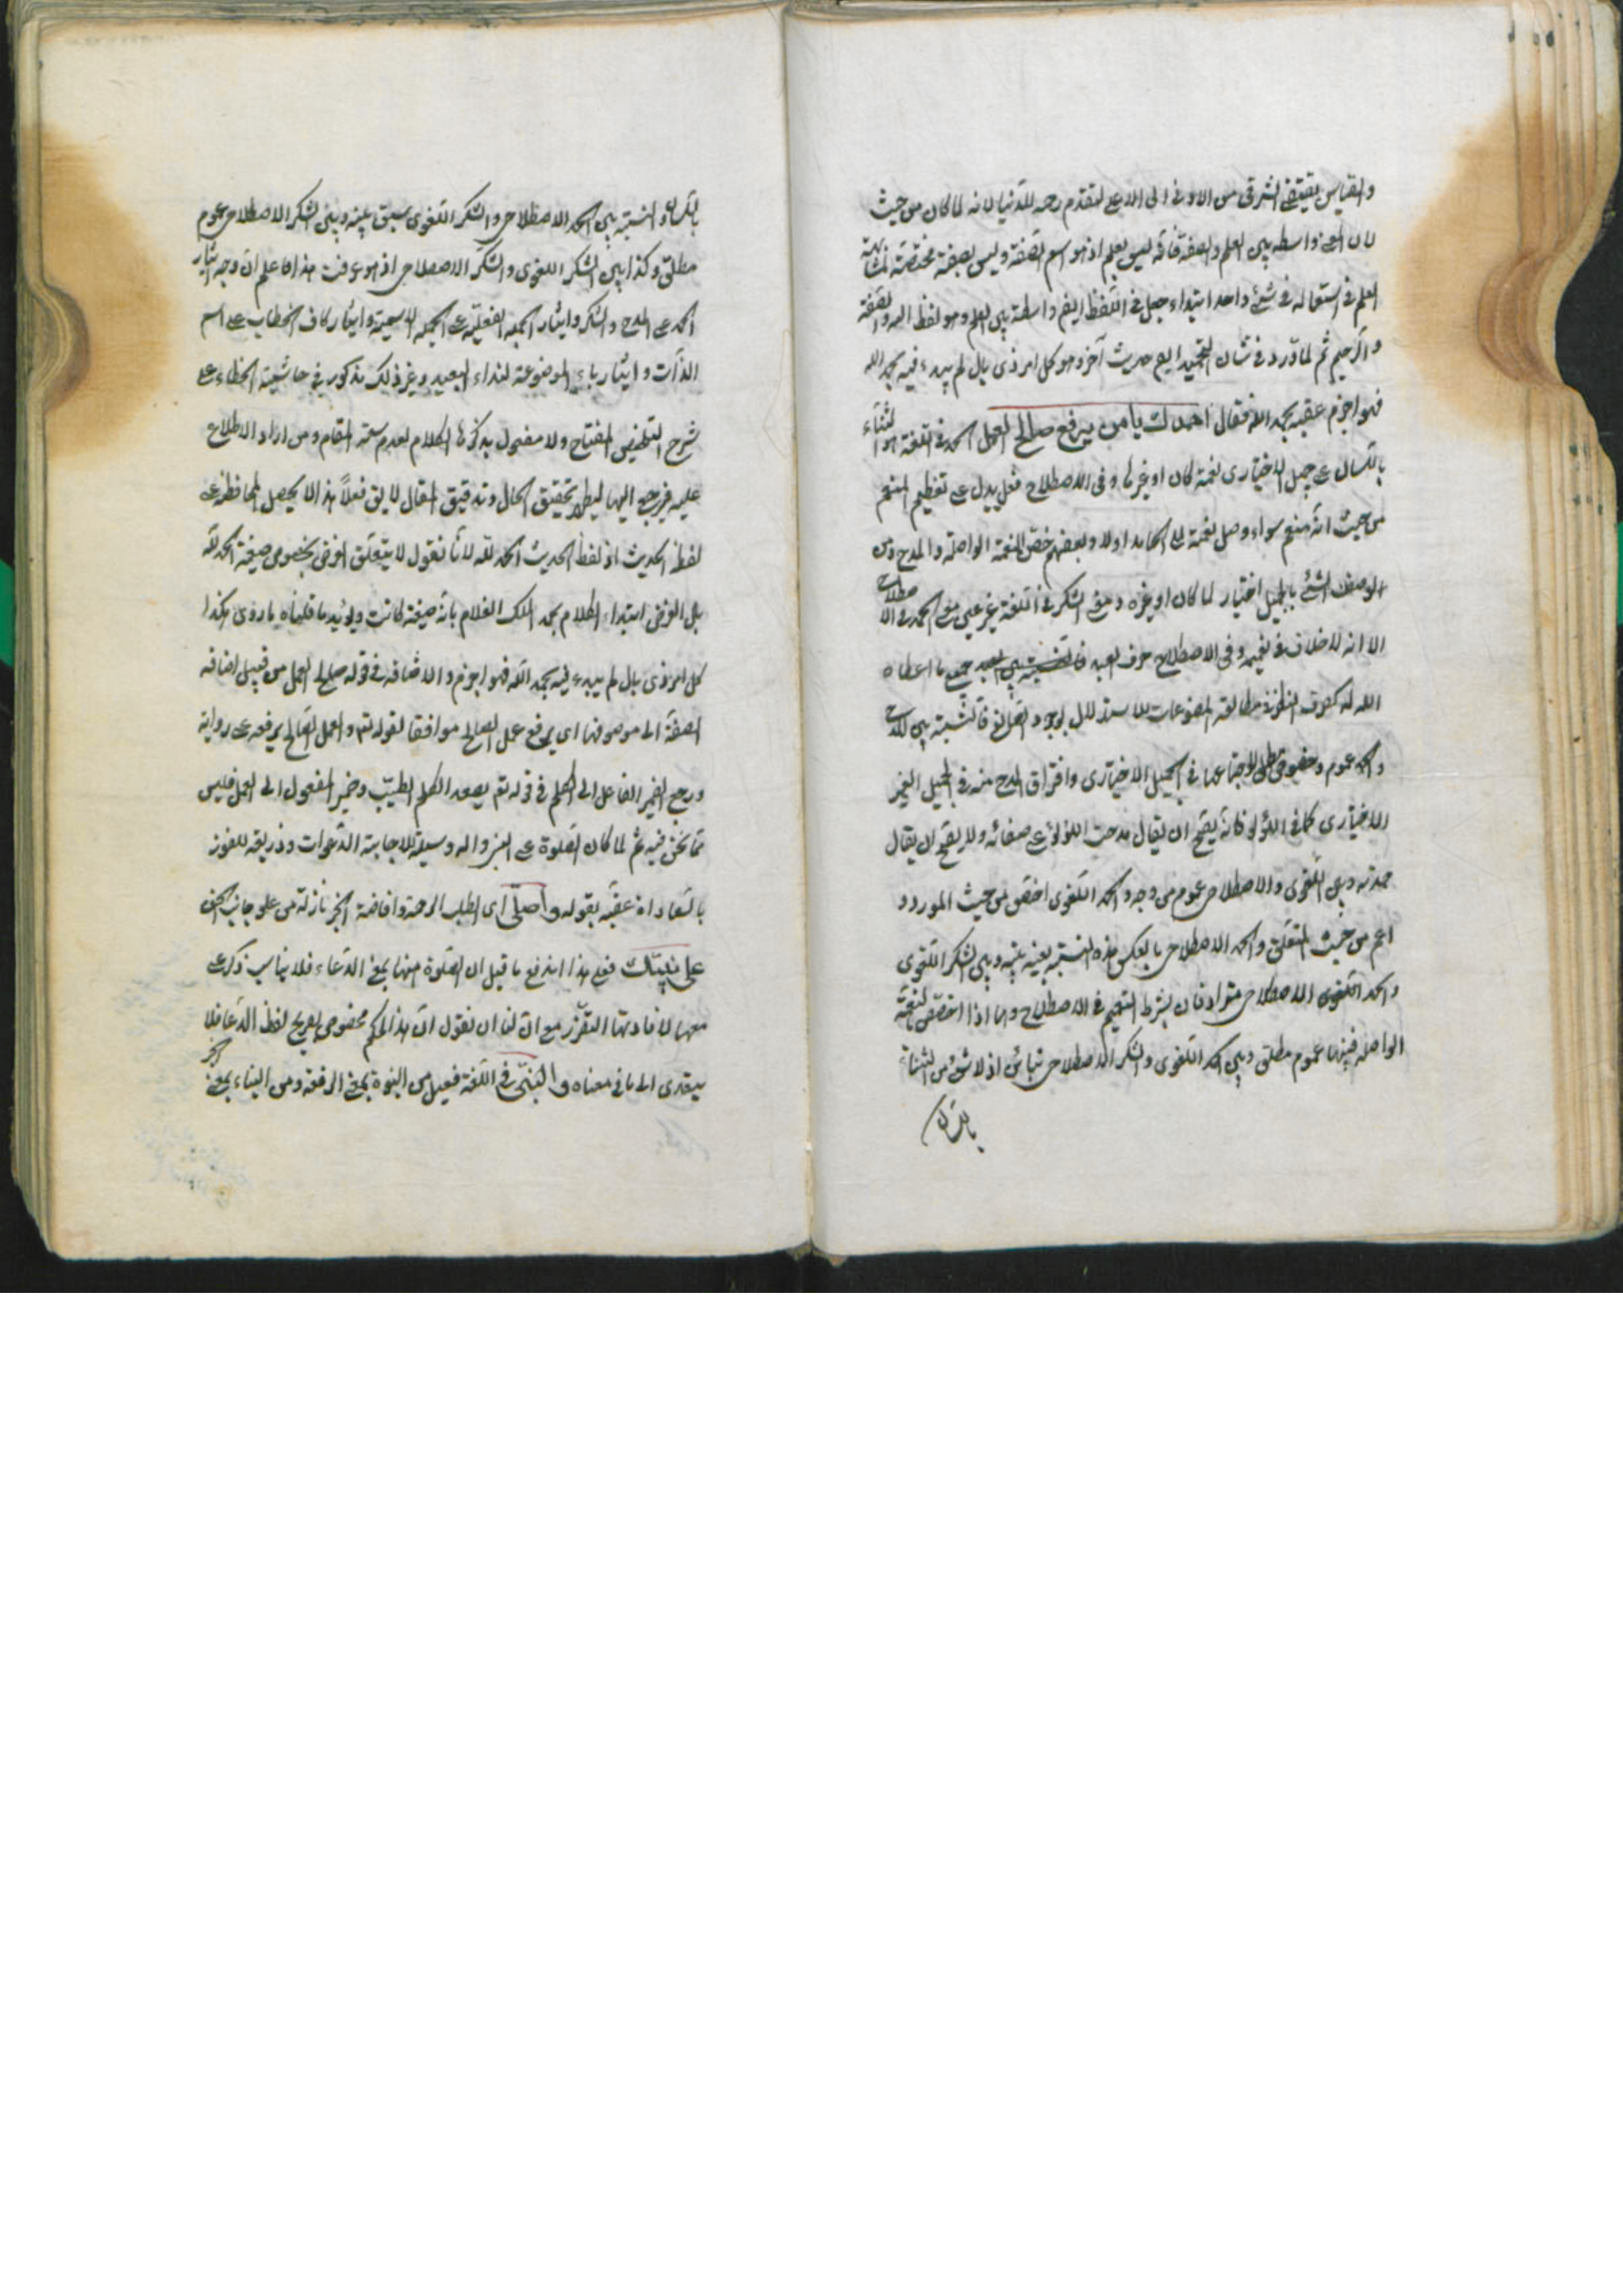 والقياس يقتضى الترقى من الادنى الى الاعلى لتقدم رحمة الدنيا لانه لما كان من حيث
لان المعنى واسطه بين العلم والصفة فانه ليس بعلم اذ هو اسم لصفة وليس بصفة مختصة لمشابهة
العلم فى استعماله فى شئ واحد ابتداء جعل فى اللفظ ايضا واسطة بين العلم وهو لفظ الله والصفة
والرحيم ثم لما ورد فى شان التحميد ايضا حديث آخر وهو كل امر ذى بال لم يبدء فيه بحمد الله
فهو اجزم عقبه بحمد الله فقال احمدك يا من يرفع صالح العمل الحمد فى اللغة هو الثناء
باللسان على جميل الاختيارى نعمة كان او غيرها وفى الاصطلاح فعل يدل على تعظيم المنعم
من حيث انه منعم سواء وصل نعمة الى الحامد اولا وبعضهم خص النعمة الواصلة والمدح
الوصف الشئ بالجميل اختيار لما كان او غيره ومعنى الشكر فى اللغة غير عين معنى الحمد فى الاصطلاح
الا انه لاخلاف فى تعميمه وفى الاصطلاح صرف العبد جميع ما اعطاه
الله له كصرف النظر فى مطالعة المصنوعات للاستدلال بوجود الصانع فالنسبة بين المدح
والحمد عموم وخصوص مطلق لاجتماعهما فى الجميل الاختيارى وافتراق المدح منه فى الجميل الغير
الاختيارى كما فى اللؤلؤ فانه يصح ان يقال مدحت اللؤلؤ على صفائه ولا يصح ان يقال
حمدته وبين اللغوى والاصطلاحى عموم من وجه والحمد اللغوى اخص من حيث المورد و
اعم من حيث المتعلق والحمد الاصطلاحى بالعكس هذه النسبة بعينه بينه وبين الشكر اللغوى
والحمد اللغوى الاصطلاحى مترادفان بشرط التعميم فى الاصطلاح واما اذا اختص بالنعمة
الواصله فبينهما عموم مطلق وبين الحمد اللغوى والشكر الاصطلاحى تباين اذ لا شئ من الثناء
باللسان
باللسان و النسبة بين الحمد الاصطلاحى والشكر اللغوى سبق بينه وبين الشكر الاصطلاحى عموم
مطلق وكذا بين الشكر اللغوى والشكر الاصطلاحى اذ هو عرفت هذا فاعلم ان وجه ايثار
الحمد على المدح والشكر وايثار الجملة الفعلية على الجملة الاسمية وايثار كاف الخطاب على اسم
الذات وايثار ياء الموضوعة لنداء البعيد وغير ذلك مذكور فى حاشية الخطاء على
شرح التلخيص المفتاح ولا مفصول بذكرها الكلام لعدم سعة المقام ومن اراد الاطلاع
عليه فيرجع اليها ليطلع تحقيق الحال وتدقيق المقال لا يق فعلا هذا لا يحصل المحافظة على
لفظ الحديث اذ لفظ الحديث الحمد لله لانا نقول لا يتعلق الغرض بخصوص صيغة الحمد لله
بل الغرض ابتداء الكلام بحمد الملك العلام باية صيغة كانت ويؤيد ما قلناه ما روى هكذا
كل امر ذى بال لم يبدء فيه بحمد الله فهو اجزم والاضافة فى قوله صالح العمل من قبيل اضافة
الصفة الى موصوفها اى يرفع عمل الصالح موافقا لقوله تع والعمل الصالح يرفعه على رواية
ورجع الضمير الفاعل الى الكلم فى قوله تع يصعد الكلم الطيب وضمير المفعول الى العمل فليس
مما نحن فيه ثم لما كان الصلوة على النبى واله وسيلة لاجابة الدعوات وذريعة للفوز
بالسعادات عقبه بقوله واصلى اى اطلب الرحمة وافاضة الخير نازلة من علو جانب الحق
على نبيك فعلى هذا اندفع ما قيل ان الصلوة منها بمعنى الدعاء فلا يناسب ذكر على
معها لافادتها التضرر مع ان لنا ان نقول ان هذا الحكم مخصوص بصريح لفظ الدعا فلا
يتعدى الى ما فى معناه والنبى فى اللغة فعيل من النبوة بمعنى الرفعة ومن النباء بمعنى